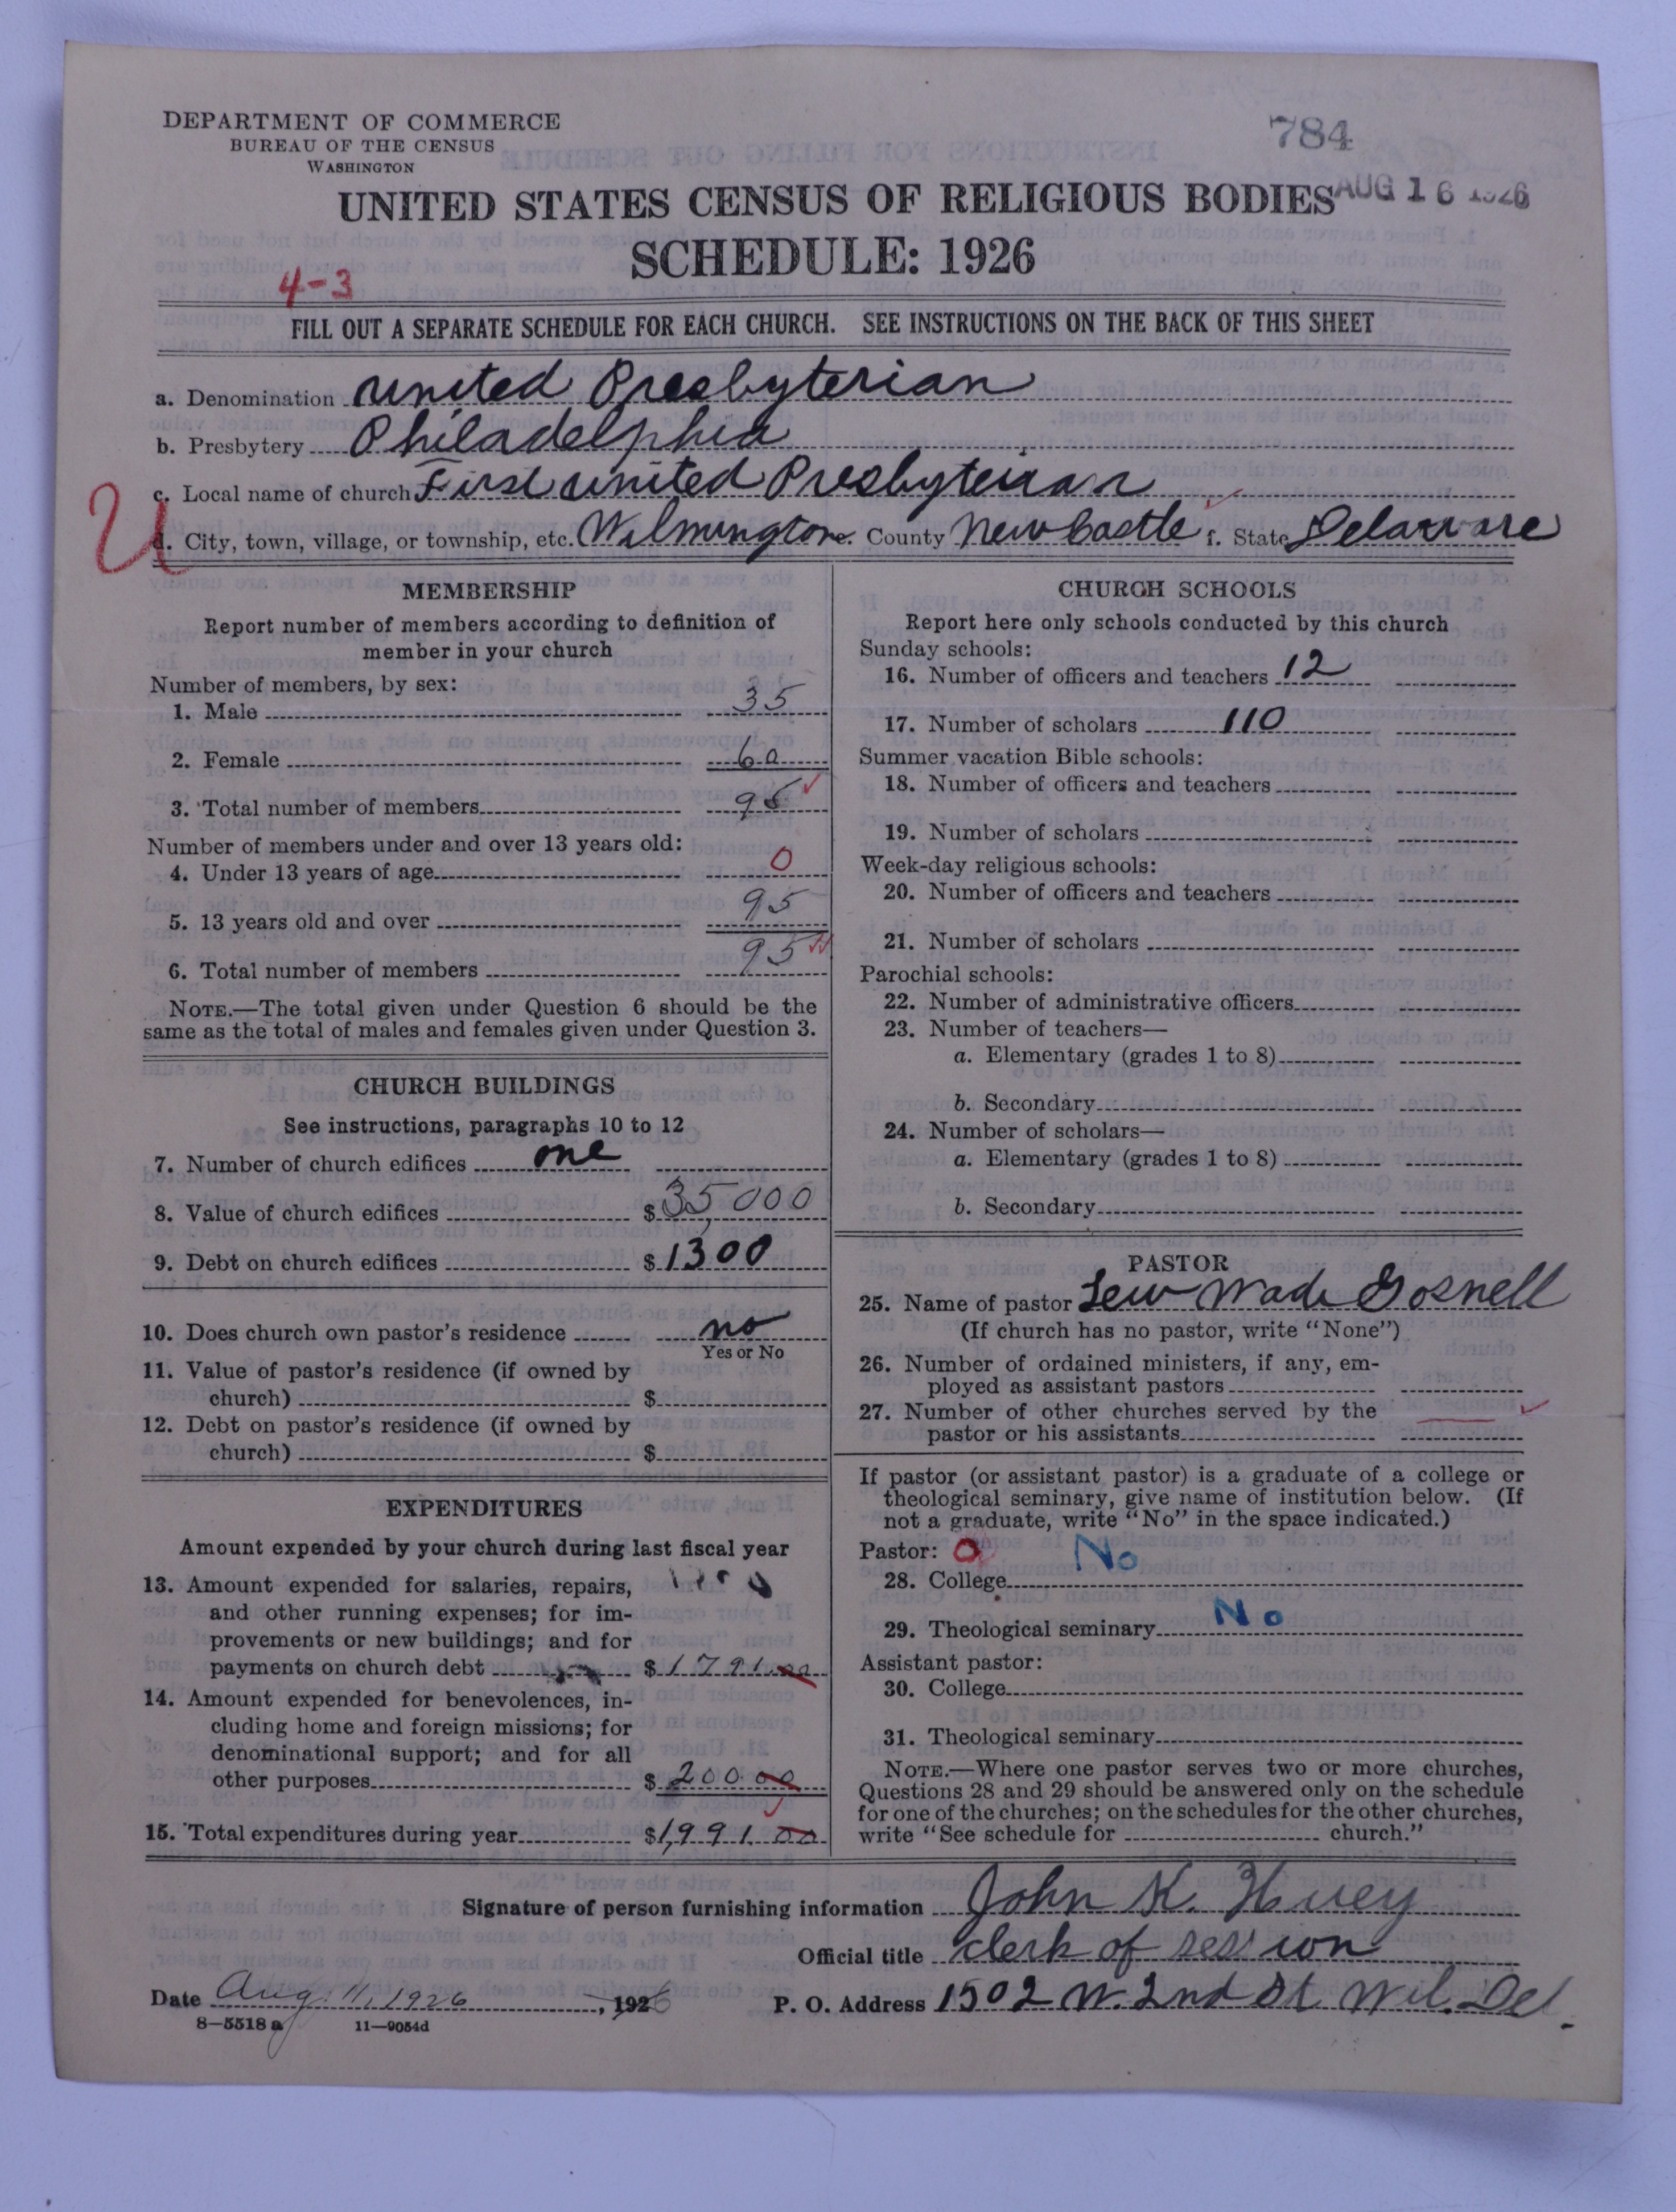 DEPARTMENT OF COMMERCE
BUREAU OF THE CENSUS
WASHINGTON
784
UNITED STATES CENSUS OF RELIGIOUS BODIES
AUG 16 1926
SCHEDULE: 1926
4-3
FILL OUT A SEPARATE SCHEDULE FOR EACH CHURCH. SEE INSTRUCTIONS ON THE BACK OF THIS SHEET
a. Denomination United Presbyterian
b. Presbytery Philadelphia
c. Local name of church First United Presbyterian
U
d. City, town, village, or township, etc. Wilmington e. County New Castle f. State Delaware
MEMBERSHIP
Report number of members according to definition of
member in your church
Number of members, by sex:
1. Male 35
2. Female 60
3. Total number of members 95
Number of members under and over 13 years old:
4. Under 13 years of age 0
5. 13 years old and over 95
6. Total number of members 95
NOTE.—The total given under Question 6 should be the
same as the total of males and females given under Question 3.
CHURCH BUILDINGS
See instructions, paragraphs 10 to 12
7. Number of church edifices one
8. Value of church edifices $ 35,000
9. Debt on church edifices $ 1300
10. Does church own pastor's residence no
Yes or No
11. Value of pastor's residence (if owned by
church) $
12. Debt on pastor's residence (if owned by
church) $
EXPENDITURES
Amount expended by your church during last fiscal year
13. Amount expended for salaries, repairs,
and other running expenses; for im-
provements or new buildings; and for
payments on church debt $ 1791.00
14. Amount expended for benevolences, in-
cluding home and foreign missions; for
denominational support; and for all
other purposes $ 200.00
15. Total expenditures during year $ 1,991.00
CHURCH SCHOOLS
Report here only schools conducted by this church
Sunday schools:
16. Number of officers and teachers 12
17. Number of scholars 110
Summer vacation Bible schools:
18. Number of officers and teachers
19. Number of scholars
Week-day religious schools:
20. Number of officers and teachers
21. Number of scholars
Parochial schools:
22. Number of administrative officers
23. Number of teachers—
a. Elementary (grades 1 to 8)
b. Secondary
24. Number of scholars—
a. Elementary (grades 1 to 8)
b. Secondary
PASTOR
25. Name of pastor Lew Wade Gosnell
(If church has no pastor, write "None")
26. Number of ordained ministers, if any, em-
ployed as assistant pastors
27. Number of other churches served by the
pastor or his assistants
If pastor (or assistant pastor) is a graduate of a college or
theological seminary, give name of institution below. (If
not a graduate, write "No" in the space indicated.)
Pastor: 0
28. College No
29. Theological seminary No
Assistant pastor:
30. College
31. Theological seminary
NOTE.—Where one pastor serves two or more churches,
Questions 28 and 29 should be answered only on the schedule
for one of the churches; on the schedules for the other churches,
write "See schedule for church."
Signature of person furnishing information John K. Huey
Official title clerk of session
Date Aug. 11, 1926, 1926
P. O. Address 1502 W. 2nd St Wil. Del.
8—5518 a 11—9054d